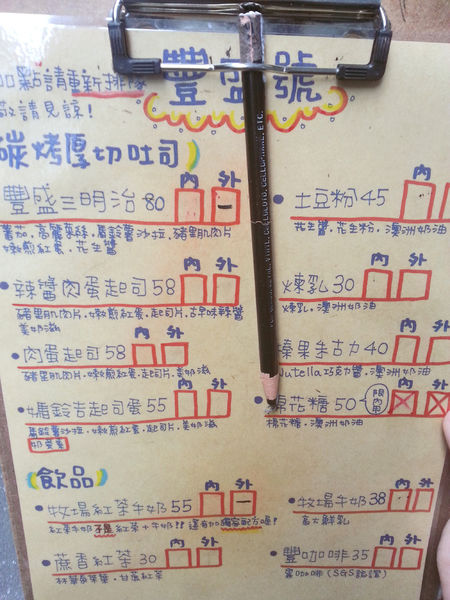 加點請重新排隊
敬請見諒!
豐盛號
碳烤厚切吐司
內 外
豐盛三明治 80 一
蕃茄.高麗菜絲.馬鈴薯沙拉.豬里肌肉片
嫩煎紅蛋.花生醬
內 外
土豆粉 45
花生醬.花生粉.澳洲奶油
內 外
辣醬肉蛋起司 58
豬里肌肉片.嫩煎紅蛋.起司片.古早味辣醬
美奶滋
內 外
煉乳 30
煉乳.澳洲奶油
內 外
肉蛋起司 58
豬里肌肉片.嫩煎紅蛋.起司片.美奶滋
內 外
榛果朱古力 40
Nutella巧克力醬.澳洲奶油
內 外
馬鈴吉起司蛋 55
馬鈴薯沙拉.嫩煎紅蛋.起司片.美奶滋
奶蛋素
內 外
棉花糖 50 限內用
棉花糖.澳洲奶油
飲品
內 外
牧場紅茶牛奶 55 一
紅茶牛奶不是紅茶+牛奶!! 還有加獨家配方喔!
內 外
牧場牛奶 38
高大鮮乳
內 外
蔗香紅茶 30
內 外
豐咖啡 35
黑咖啡(SGS認證)